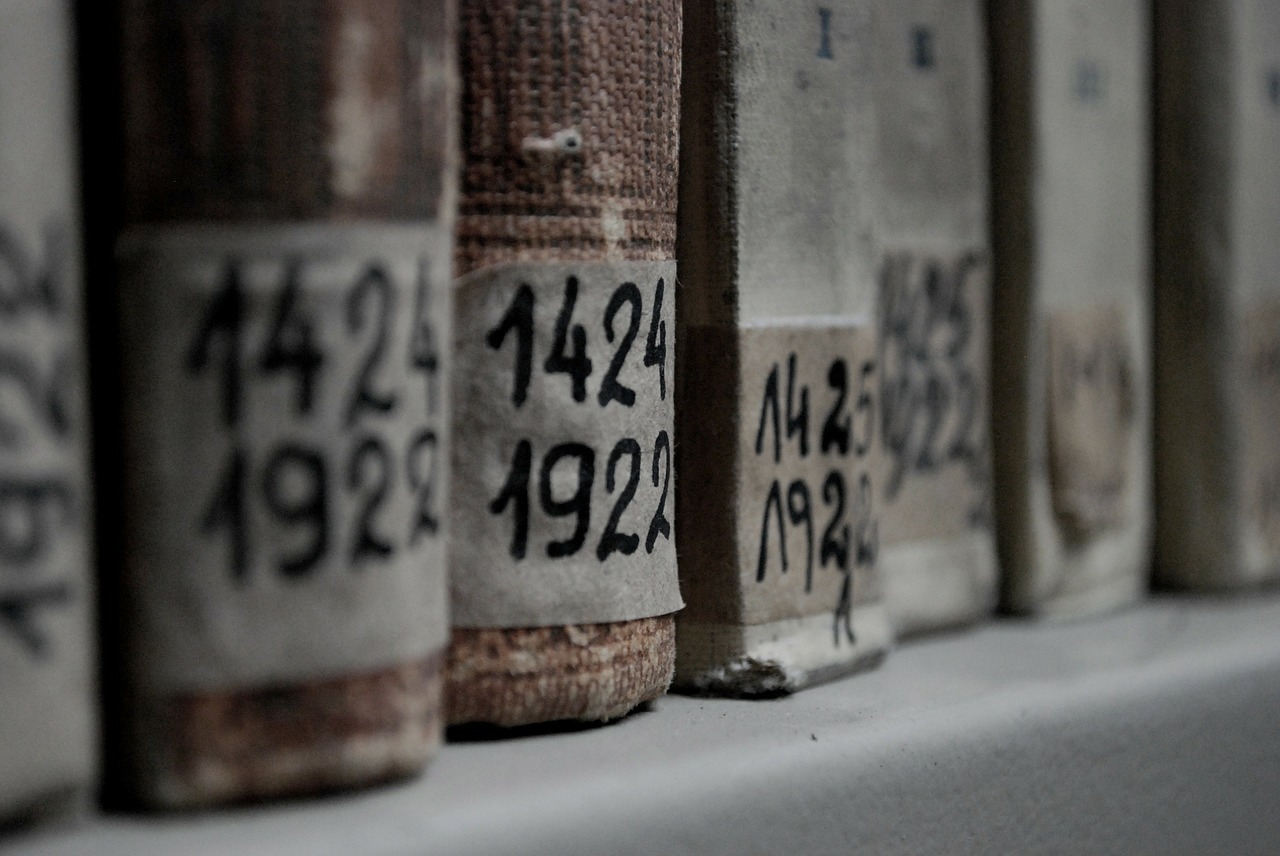 1424
1922
1424
1922
I
1425
1922
1
1425
1922